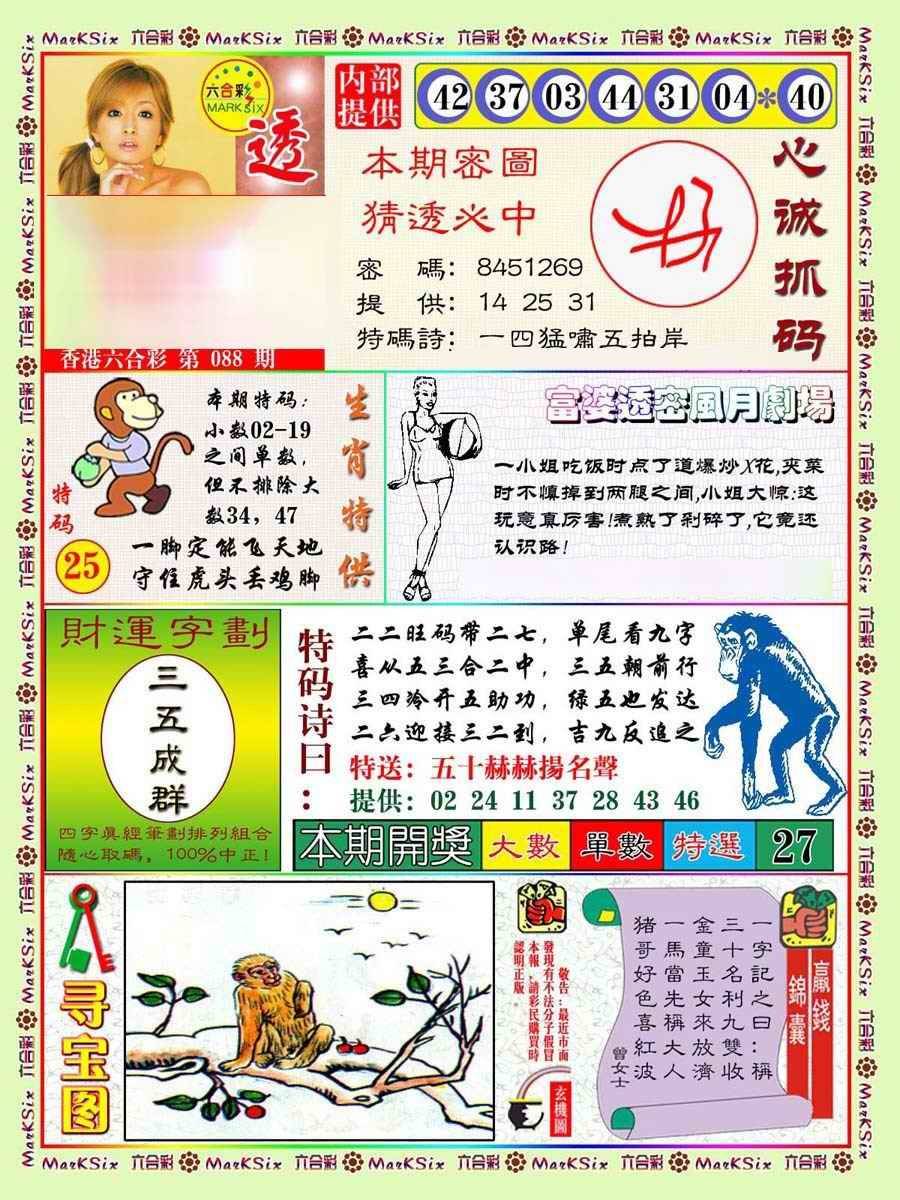 MarKSix 六合彩 MarKSix 六合彩 MarKSix 六合彩 MarKSix 六合彩 MarKSix 六合彩
六合彩
MARK SIX
透
内部
提供
42 37 03 44 31 04 * 40
本期密圖
猜透必中
密 碼: 8451269
提 供: 14 25 31
特碼詩: 一四猛嘯五拍岸
心诚抓码
香港六合彩 第 088 期
本期特码:
小数02-19
之间单数,
但不排除大
数34, 47
特码
25
一脚定能飞天地
守住虎头丢鸡脚
生肖特供
富婆透密風月劇場
一小姐吃饭时点了道爆炒X花,夹菜
时不慎掉到两腿之间,小姐大惊:这
玩意真厉害!煮熟了剁碎了,它竟还
认识路!
財運字劃
三五成群
四字真經筆劃排列組合
隨心取碼, 100%中正!
特码诗曰:
二二旺码带二七, 单尾看九字
喜从五三合二中, 三五朝前行
三四冷开五助功, 绿五也发达
二六迎接三二到, 吉九反追之
特送: 五十赫赫揚名聲
提供: 02 24 11 37 28 43 46
本期開獎 大數 單數 特選 27
寻宝图
敬告:最近市面
發現有不法分子假冒
本報,請彩民購買時
認明正版。
玄機圖
贏錢
錦囊
一字記之曰:稱
三十名利九雙收
金童玉女來放濟
一馬當先稱大人
猪哥好色喜紅波
曾女士
MarKSix 六合彩 MarKSix 六合彩 MarKSix 六合彩 MarKSix 六合彩 MarKSix 六合彩